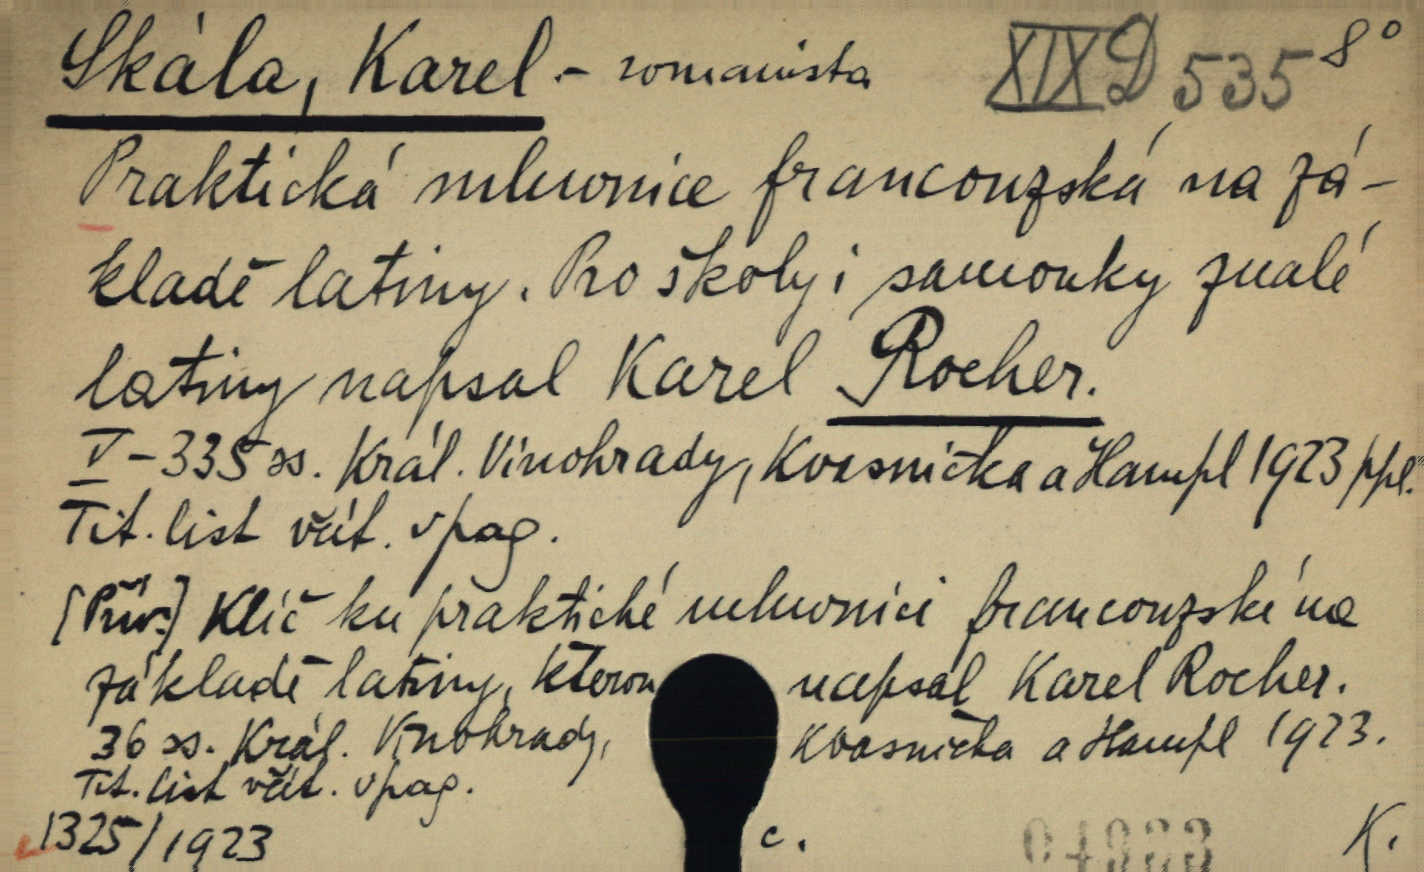 Skála, Karel.- romanista XIX D 535 8°
Praktická mluvnice francouzská na zá-
kladě latiny. Pro školy i samouky znalé
latiny napsal Karel Rocher.
V-335 ss. Král. Vinohrady, Kvasnička a Hampl 1923 ppl.
Tit. list včít. v pag.
[Přív.] Klíč ku praktické mluvnici francouzské na
základě latiny, kterou napsal Karel Rocher.
36 ss. Král. Vinohrady, Kvasnička a Hampl 1923.
Tit. list včít. v pag.
1325/1923 c. K.